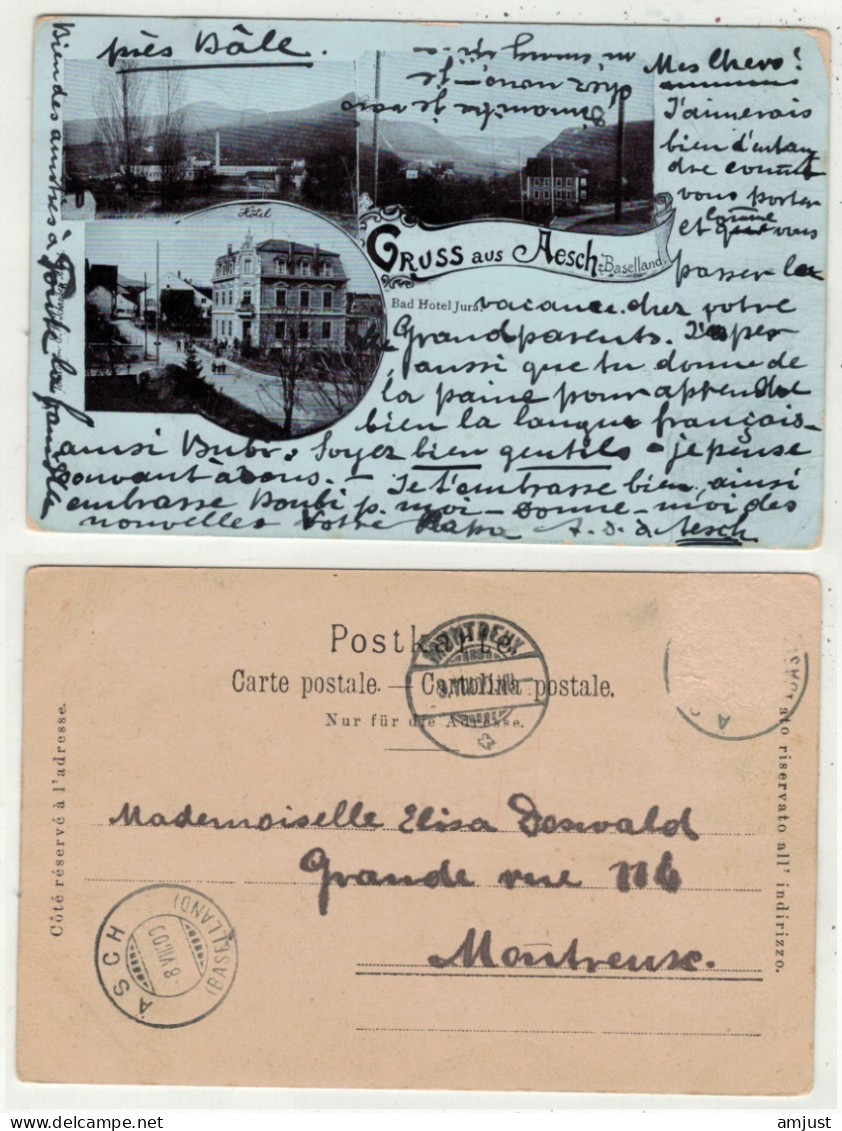 près Bâle.
Mes Chers!
J'aimerais
bien d'entan
dre comme
vous porter
comme
et que vous
passer la
vacance chez votre
Grandparents. J'esper
aussi que tu donne de
la paine pour aprendre
bien la langue français-
ainsi Bubi. Soyez bien gentils - je pense
souvant à vous. - Je t'embrasse bien, ainsi
embrasse Boubi p. moi - donne-moi des
nouvelles Votre Papa A. D. à Aesch
Bien des amitiés à toute la famille
Dimanche je vais
chez nous - je
Hôtel
GRUSS AUS AESCH-Baselland.
Bad Hotel Jura.
Postkarte.
Carte postale. — Cartolina postale.
Nur für die Adresse.
Côté réservé à l'adresse.
ato riservato all' indirizzo.
MONTREUX
Mademoiselle Elisa Doswald
Grande rue 116
Montreux.
ÄSCH
(BASELLAND)
-8.VII.00
amjust